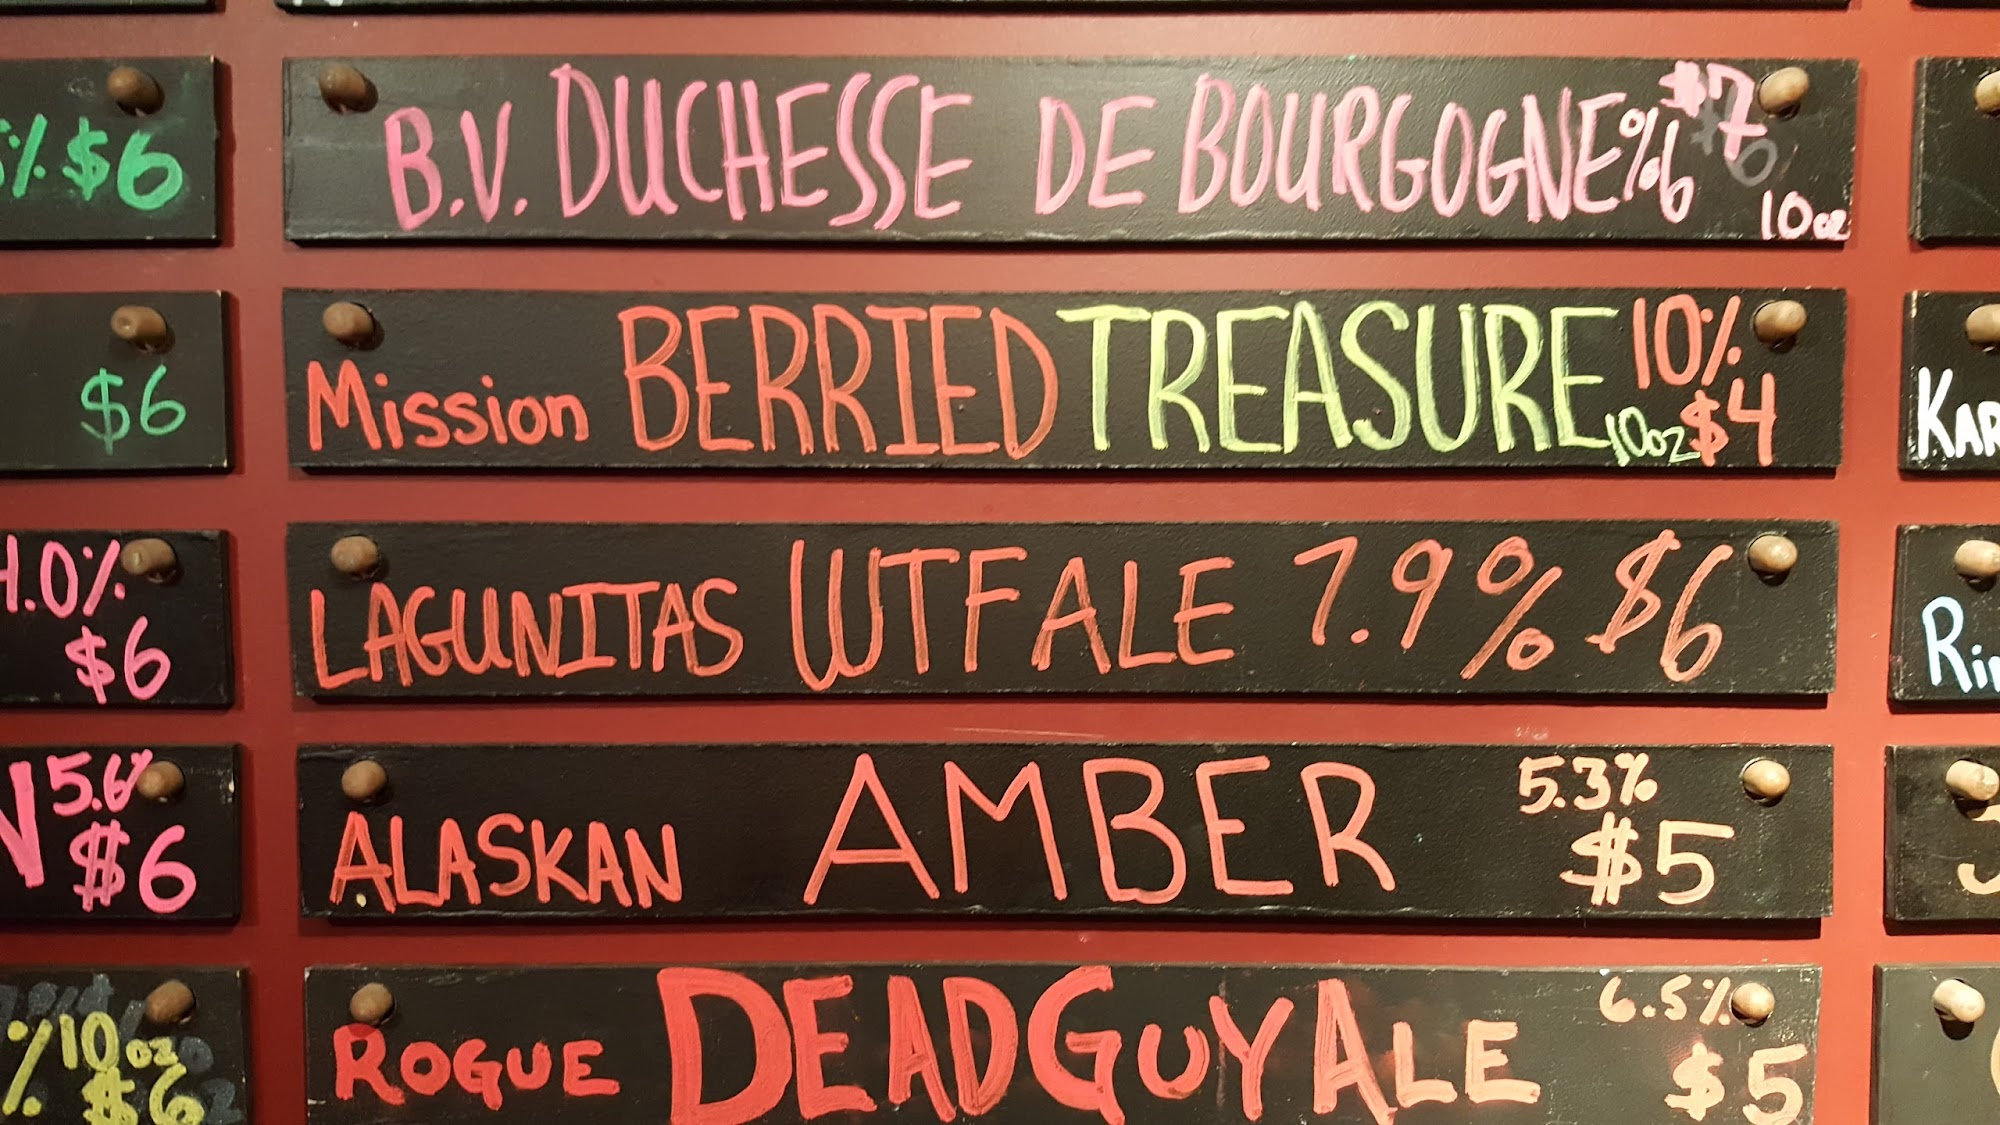 % $6
B.V. DUCHESSE DE BOURGOGNE %6 $7 10oz
$6
Mission BERRIED TREASURE 10% 10oz $4
KAR
.0% $6
LAGUNITAS WTF ALE 7.9% $6
Ri
5.6% $6
ALASKAN AMBER 5.3% $5
% 10oz $6
ROGUE DEAD GUY ALE 6.5% $5